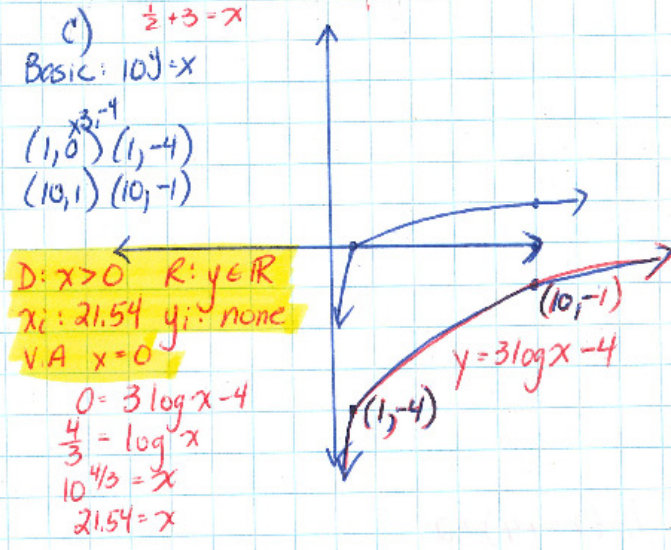 ½ + 3 = x
c)
Basic: 10^y = x
x3, -4
(1, 0) (1, -4)
(10, 1) (10, -1)
D: x > 0 R: y ∈ ℝ
xi: 21.54 yi: none
V.A x = 0
0 = 3 log x - 4
4/3 = log x
10^4/3 = x
21.54 = x
(10, -1)
y = 3 log x - 4
(1, -4)